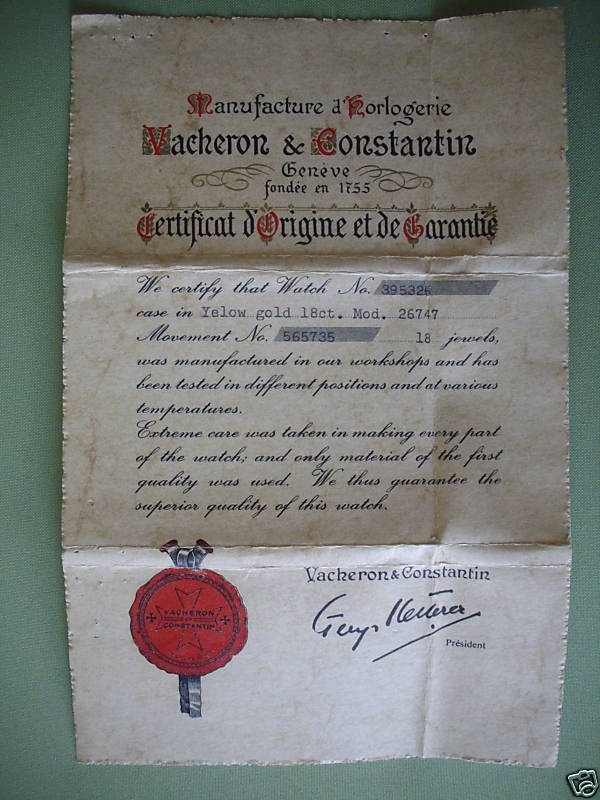 Manufacture d'Horlogerie
Vacheron & Constantin
Genève
fondée en 1755
Certificat d'Origine et de Garantie
We certify that Watch No. 395326
case in Yelow gold 18ct. Mod. 26747
Movement No. 565735 18 jewels,
was manufactured in our workshops and has
been tested in different positions and at various
temperatures.
Extreme care was taken in making every part
of the watch; and only material of the first
quality was used. We thus guarantee the
superior quality of this watch.
Vacheron & Constantin
Président
VACHERON
CONSTANTIN